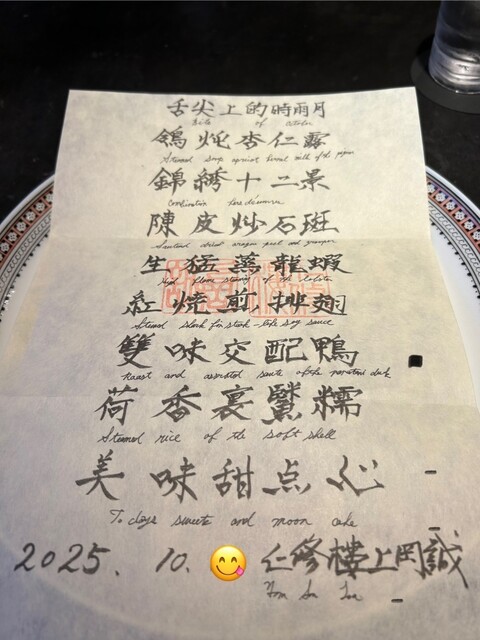 舌尖上的時雨月
of
鴿炖杏仁露
Steamed soup apricot kernel milk of the pigeon
錦綉十二景
Combination hors d'oeuvres
陳皮炒石斑
Sauteed dried orange peel and grouper
生猛蒸龍蝦
High flame steaming of the lobster
紅燒煎排翅
Stewed shark fin steak-like soy sauce
雙味交配鴨
Roast and assorted saute of the duck
荷香裏鱉糯
Steamed rice of the soft shell
美味甜点心
To days sweets and moon cake
2025. 10. 😋 仁修樓上岡誠